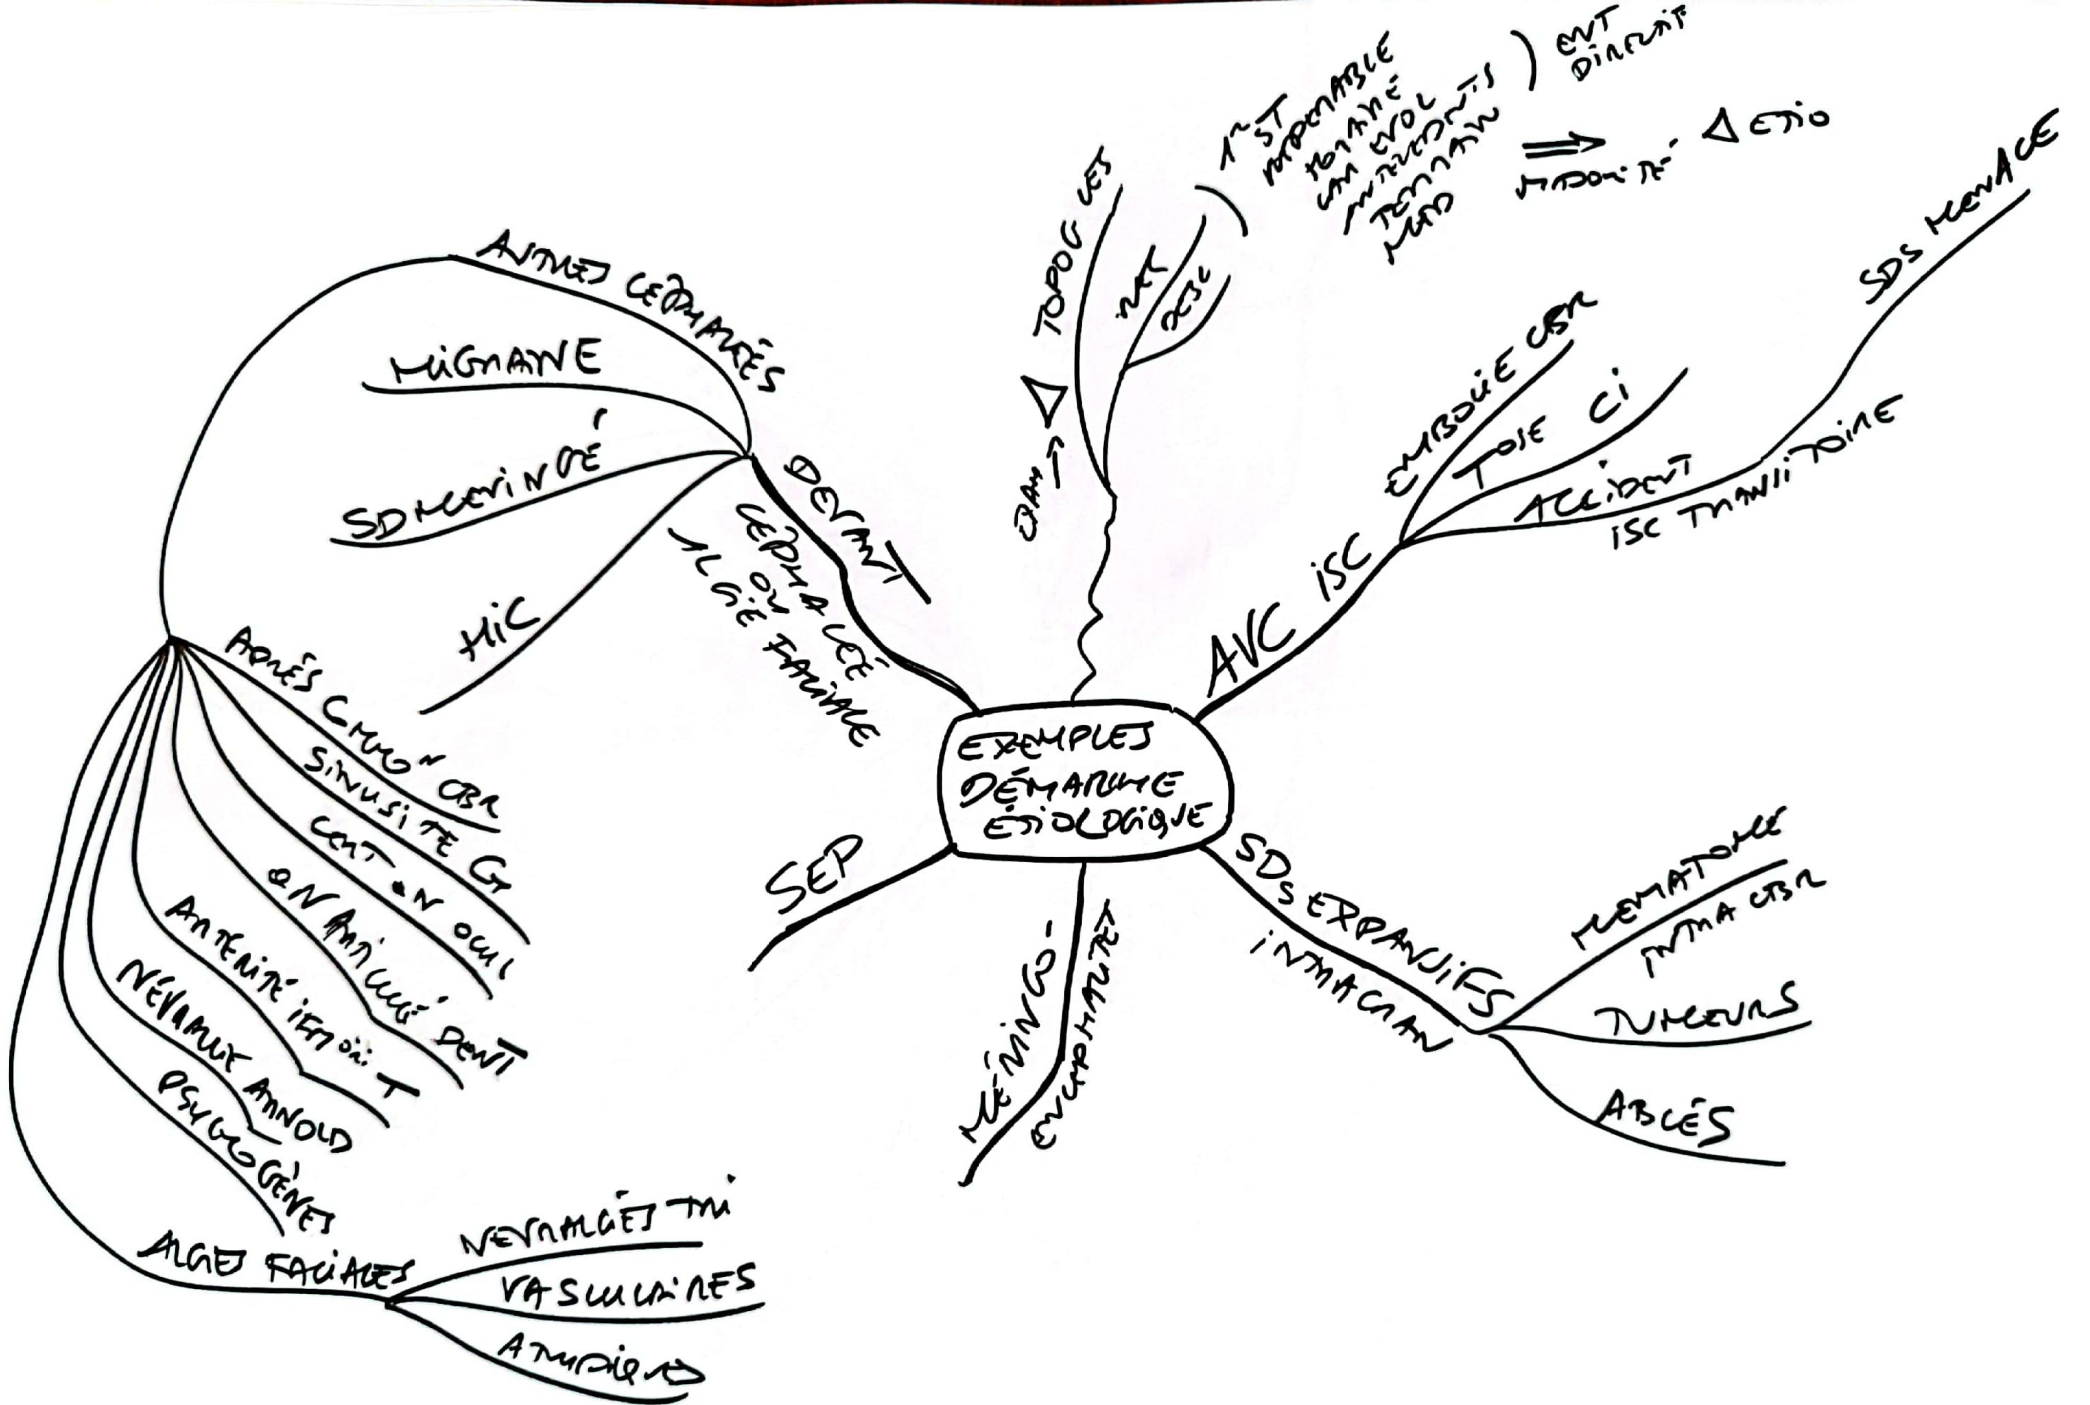 EXEMPLES
DÉMARCHE
ÉTIOLOGIQUE
TOPOG LES
EXAM → Δ
NAT
DESC
1ER ST
ANTECEDENTS
TERRAIN
ENT
DIRECTIF
⇒ Δ ETIO
AVC ISC
EMBOLIE CBR
TOSE CI
ACCIDENT
ISC TRANSITOIRE
SDS MENACE
SDS EXPANSIFS
INTRACRAN
HEMATOME
INTRA CBR
TUMEURS
ABCÉS
MÉNINGO-
ENCEPHALITES
SEP
DEVANT
CÉPHALÉE
OU
ALGIE FACIALE
AUTRES CÉPHALÉES
MIGRAINE
SD MENINGÉ
HIC
APRÉS CMMO° CBR
SINUSITE G
OCUL
DENT
ARTÉRITÉ TEMPORI T
NÉVRALGIE ARNOLD
PSYCHOGÈNES
ALGIES FACIALES
NEVRALGIES TRI
VASCULAIRES
ATYPIQUES